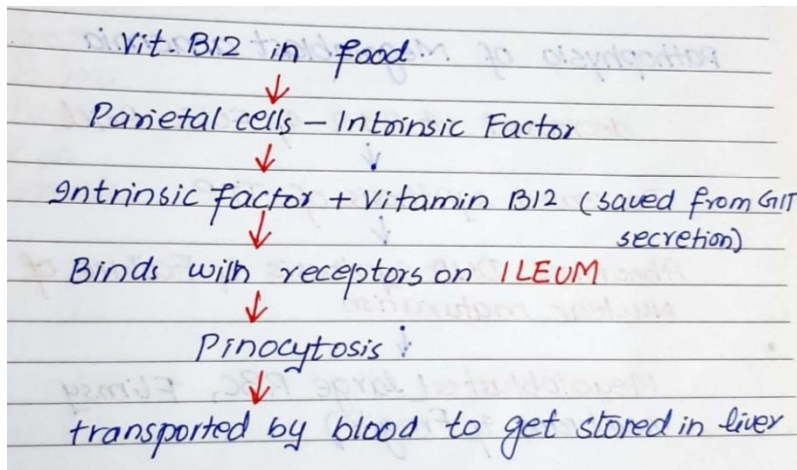 Vit. B12 in food.
Parietal cells – Intrinsic Factor
Intrinsic factor + Vitamin B12 (saved from GIT
secretion)
Binds with receptors on ILEUM
Pinocytosis
transported by blood to get stored in liver